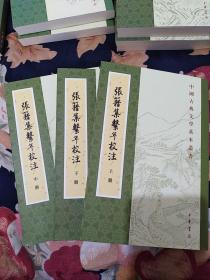 中國古典文學基本叢書
張籍集繫年校注
上册
張籍集繫年校注
下册
張籍集繫年校注
中册
中華書局